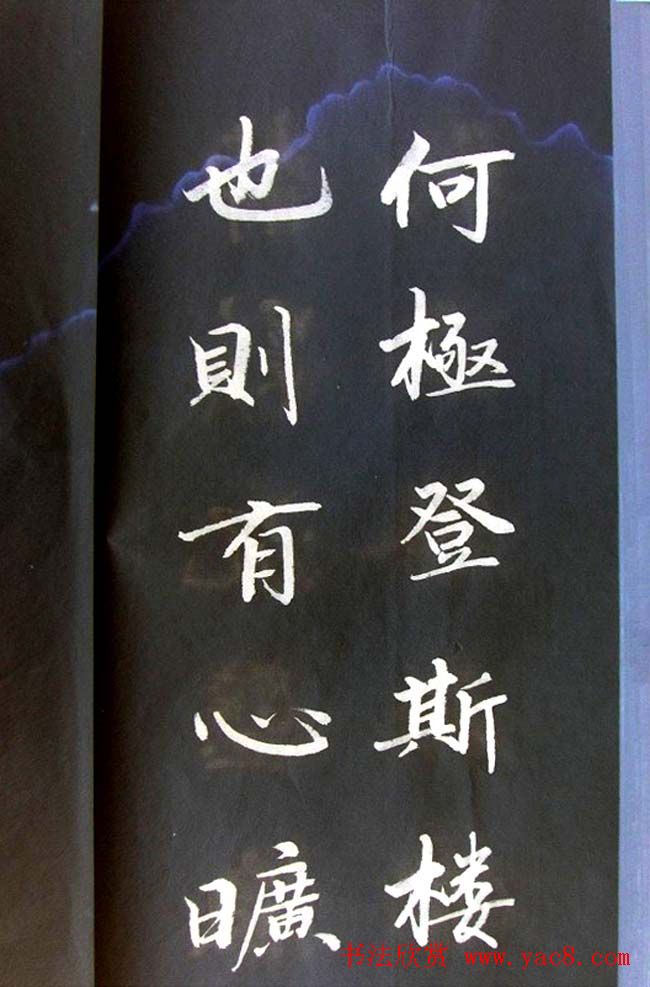 何極登斯楼
也則有心曠
书法欣赏 www.yac8.com